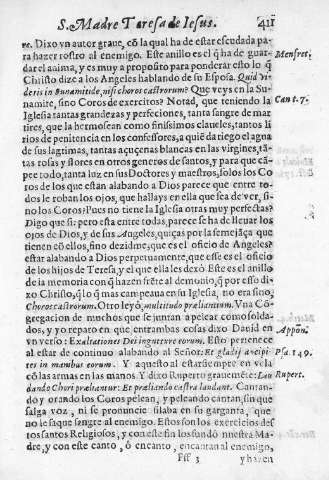 S. Madre Taresa de Iesus. 421
re. Dixo vn autor graue, cõ la qual ha de estar escudada pa-
ra hazer rostro al enemigo. Este anillo es el q̃ ha de guar- Menfret.
dar el anima, y es muy a proposito para ponderar esto lo q̃
Christo dize a los Angeles hablando de su Esposa. Quid vi-
deris in Sunamitide, nisi choros castrorum? Que veys en la Su-
namite, sino Coros de exercitos? Notad, que teniendo la Cant. 7.
Iglesia tantas grandezas y perfeciones, tanta sangre de mar
tires, que la hermosean como finissimos claueles, tantos li-
rios de penitencia en los confessores, a quiẽ da riego el agua
de sus lagrimas, tantas açuçenas blancas en las virgines, tã-
tas rosas y flores en otros generos de santos, y para que cã-
pee todo, tanta luz en sus Doctores y maestros, solos los Co
ros de los que estàn alabando a Dios parece que entre to-
dos le roban los ojos, que hallays en ella que sea de ver, si-
no los Coros? Pues no tiene la Iglesia otras muy perfectas?
Digo que si: pero esta entre todas, parece se ha de lleuar los
ojos de Dios, y de sus Angeles, quiças por la semejãça que
tienen cõ ellos, sino dezidme, que es el oficio de Angeles?
estar alabando a Dios perpetuamente, que esse es el oficio
de los hijos de Teresa, y el que ella les dexò. Este es el anillo
de la memoria con q̃ hazen frẽte al demonio, q̃ por esso di-
xo Christo, q̃ lo q̃ mas campeaua en su Iglesia, no era sino,
Choros castrorum. Otro leyò, multitudo præliantium. Vna Cõ
gregacion de muchos que se juntan a pelear como solda-
dos, y yo reparo en que entrambas cosas dixo Dauid en Appõn.
vn verso: Exaltationes Dei in gutture eorum. Esto pertenece
al estar de continuo alabando al Señor: Et gladij ancipi- Psa. 149.
tes in manibus eorum. Y aquesto al estar siempre en vela
cõ las armas en las manos. Y dixo Ruperto grauemẽte: Lau Rupert.
dando Chori præliantur: Et præliando castra laudant. Cantan-
do y orando los Coros pelean, y peleando cantan, sin que
salga voz, ni se pronuncie silaba en su garganta, que
no le saque sangre al enemigo. Estos son los exercicios des
tos santos Religiosos, y con este fin los fundò nuestra Ma
dre, y con este canto, ò encanto, encantan al enemigo,
Fff 3 y hazen